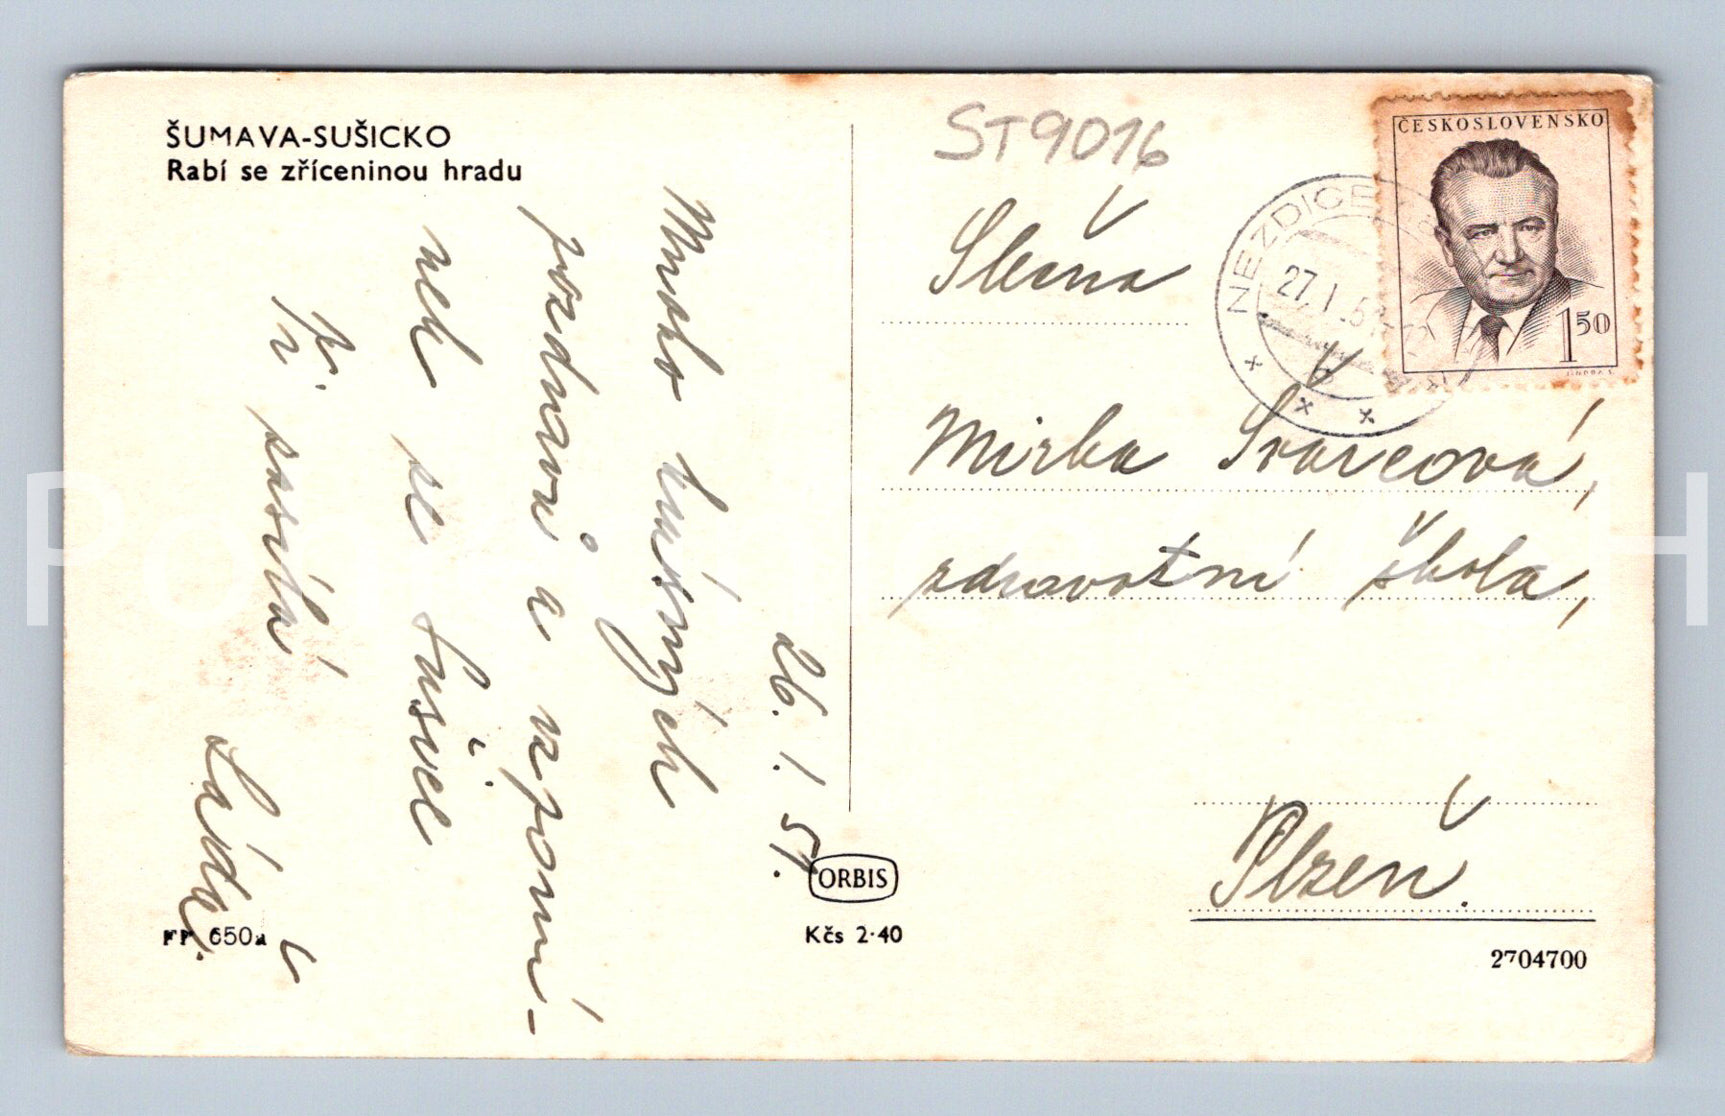 ŠUMAVA-SUŠICKO
Rabí se zříceninou hradu
26. I. 51.
Mnoho krásných
pozdravů a vzpomí-
nek se Sušice
Ti posílá
Láďa.
FF 650a
ORBIS
Kčs 2·40
ST9016
ČESKOSLOVENSKO
1 50
NEZDICE
27. I. 5
Slečna
Mirka Švarcová,
zdravotní škola,
Plzeň.
2704700